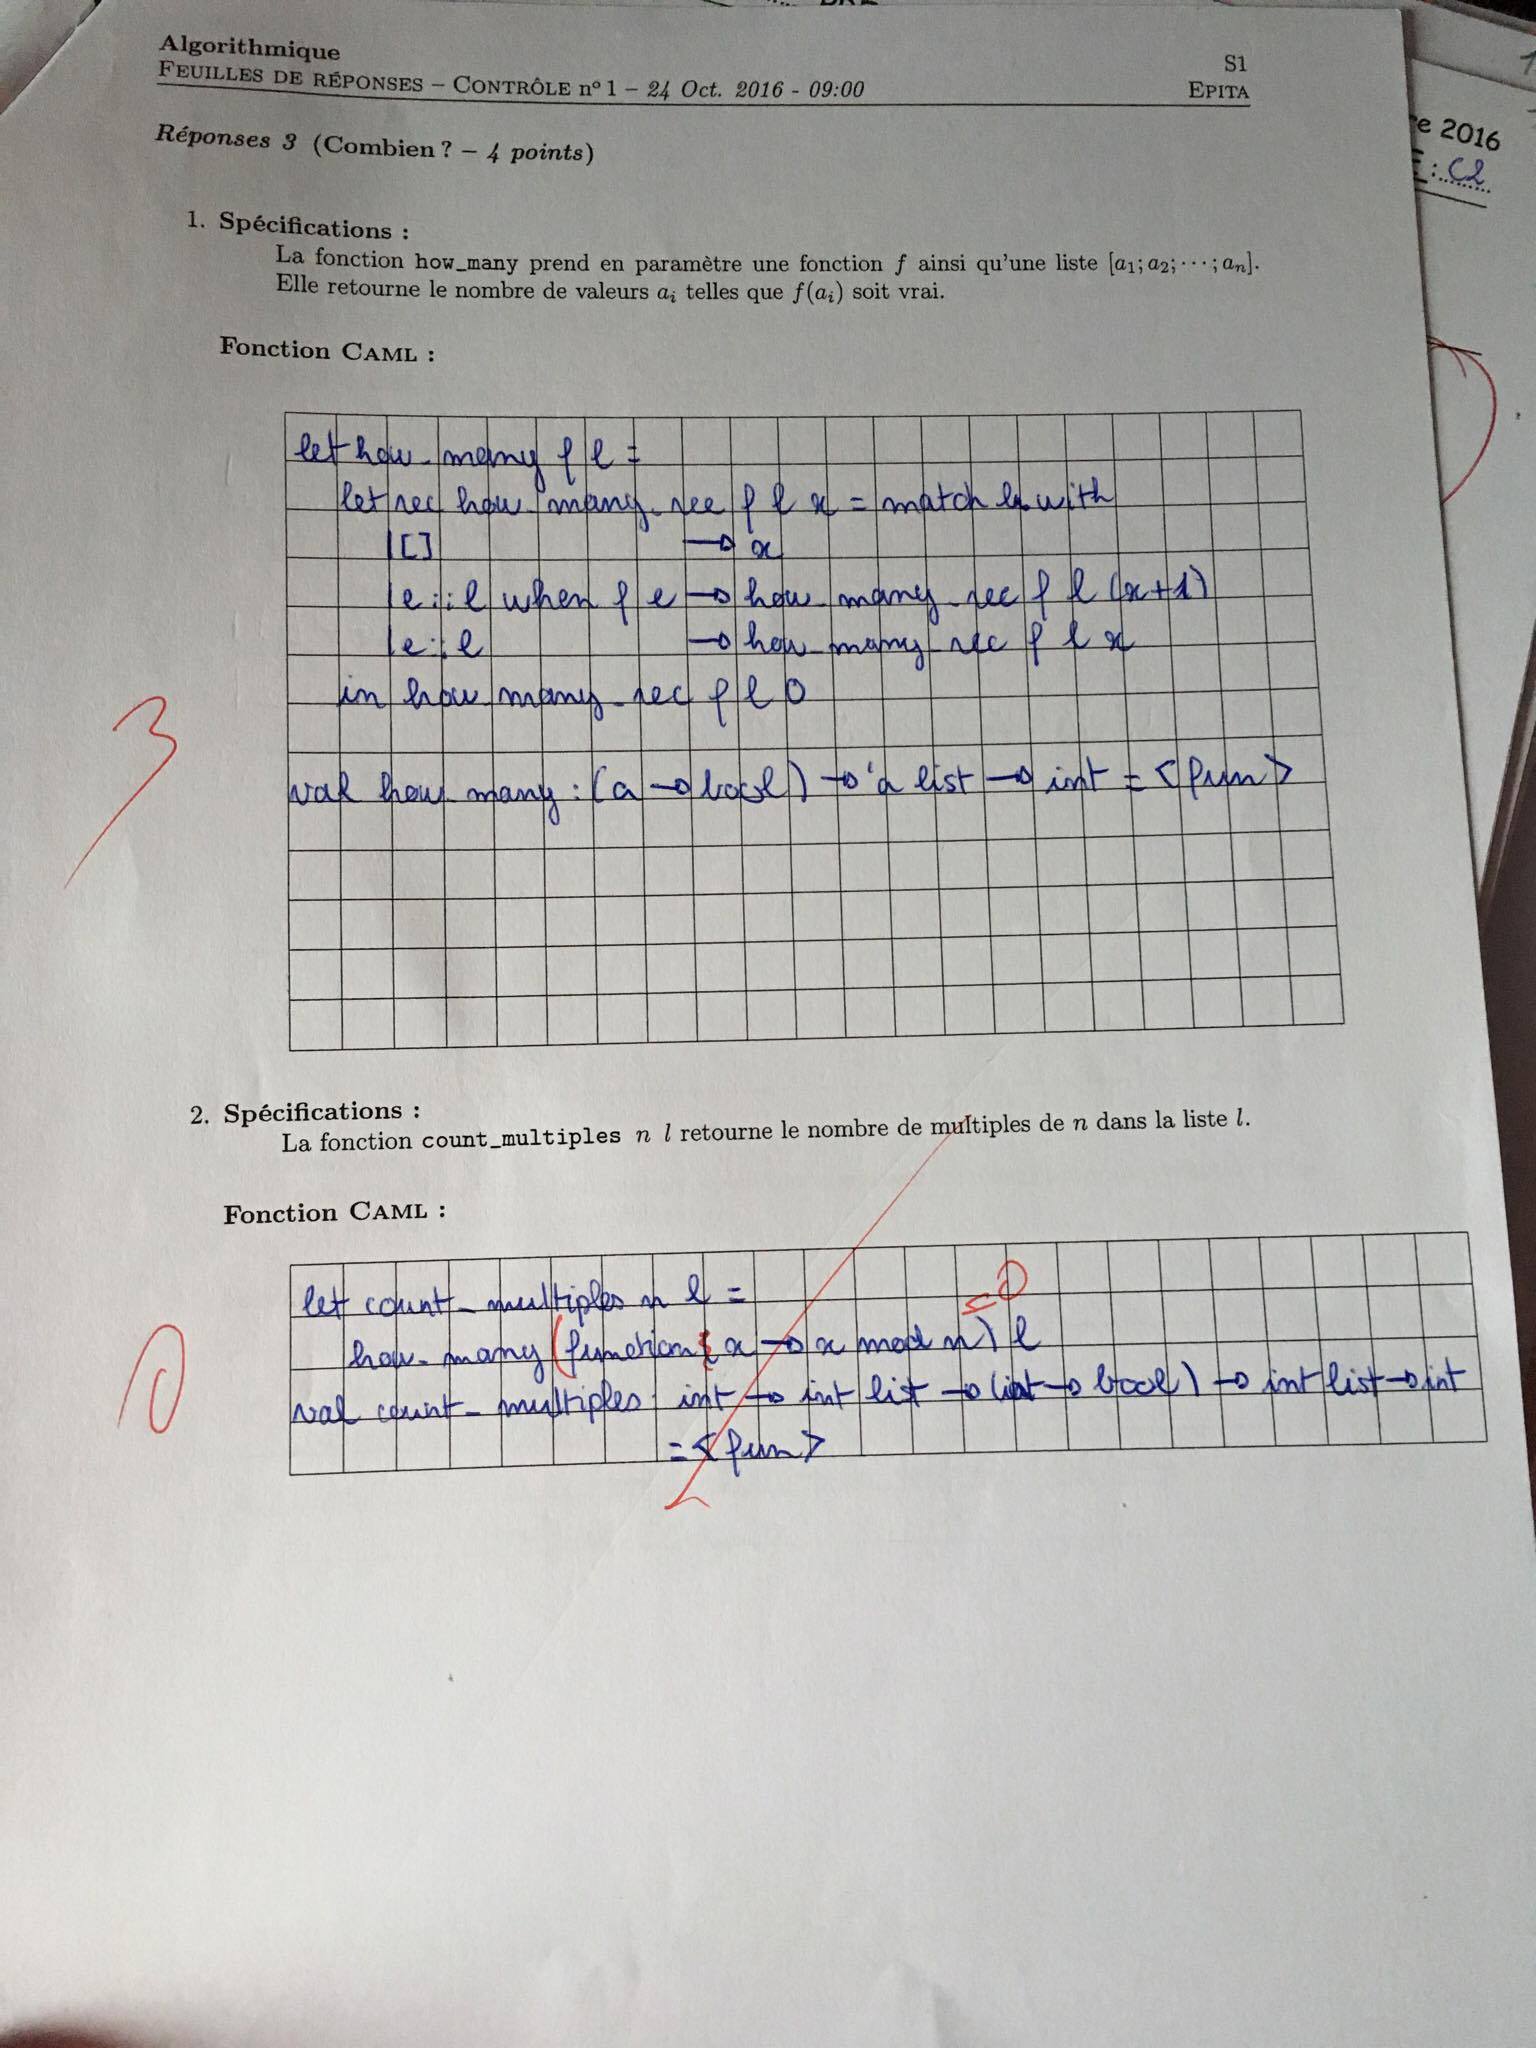 Algorithmique
S1
FEUILLES DE RÉPONSES – CONTRÔLE nº 1 – 24 Oct. 2016 - 09:00
EPITA
Réponses 3 (Combien ? – 4 points)
1. Spécifications :
La fonction how_many prend en paramètre une fonction f ainsi qu'une liste [a1; a2; ··· ; an].
Elle retourne le nombre de valeurs ai telles que f(ai) soit vrai.
Fonction CAML :
let how_many f l =
let rec how_many_rec f l x = match l with
|[] → x
|e::l when f e → how_many_rec f l (x+1)
|e::l → how_many_rec f l x
in how_many_rec f l 0
val how_many : (a → bool) → 'a list → int = <fun>
3
2. Spécifications :
La fonction count_multiples n l retourne le nombre de multiples de n dans la liste l.
Fonction CAML :
let count_multiples n l =
=0
how_many (function x → x mod n) l
val count_multiples : int → int list → (int → bool) → int list → int
= <fun>
0
e 2016
E : C2